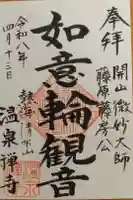 奉拝
開山微妙大師
藤原藤房公
如意輪観音
令和八年
四月十三日
温泉禅寺